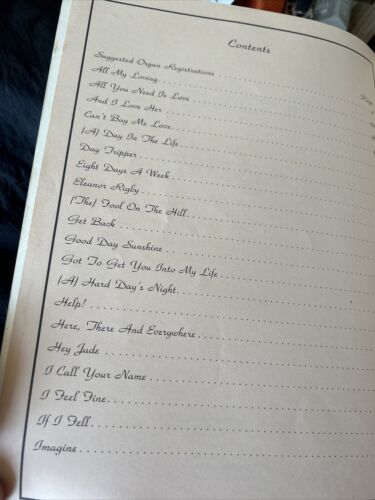 Contents
Page
Suggested Organ Registrations
All My Loving
All You Need Is Love
And I Love Her
Can't Buy Me Love
(A) Day In The Life
Day Tripper
Eight Days A Week
Eleanor Rigby
(The) Fool On The Hill
Get Back
Good Day Sunshine
Got To Get You Into My Life
(A) Hard Day's Night
Help!
Here, There And Everywhere
Hey Jude
I Call Your Name
I Feel Fine
If I Fell
Imagine